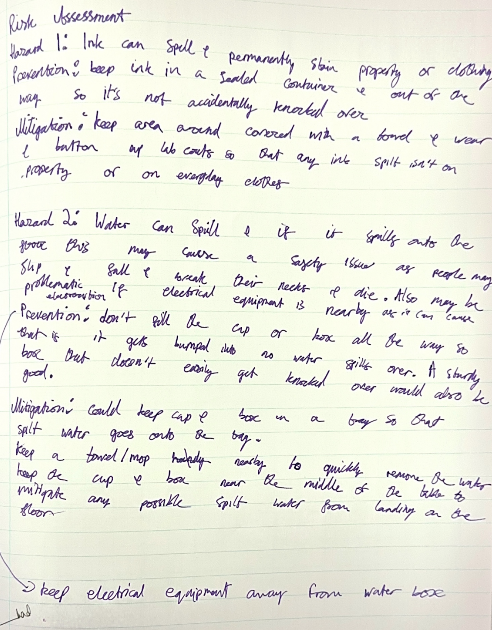 Risk Assessment
Hazard 1: Ink can spill & permanently stain property or clothing
Prevention: keep ink in a sealed container & out of the
way so it's not accidentally knocked over
Mitigation: keep area around covered with a towel & wear
& button up lab coats so that any ink spilt isn't on
property or on everyday clothes
Hazard 2: Water can spill & if it spills onto the
floor this may cause a safety issue as people may
slip & fall & break their necks & die. Also may be
problematic if electrical equipment is nearby as it can cause
electrocution
Prevention: don't fill the cup or box all the way so
that if it gets bumped into no water spills over. A sturdy
box that doesn't easily get knocked over would also be
good.
Mitigation: Could keep cup & box in a tray so that
spilt water goes onto the tray.
Keep a towel/mop nearby to quickly remove the water
keep the cup & box near the middle of the table to
mitigate any possible spilt water from landing on the
floor
→ keep electrical equipment away from water box